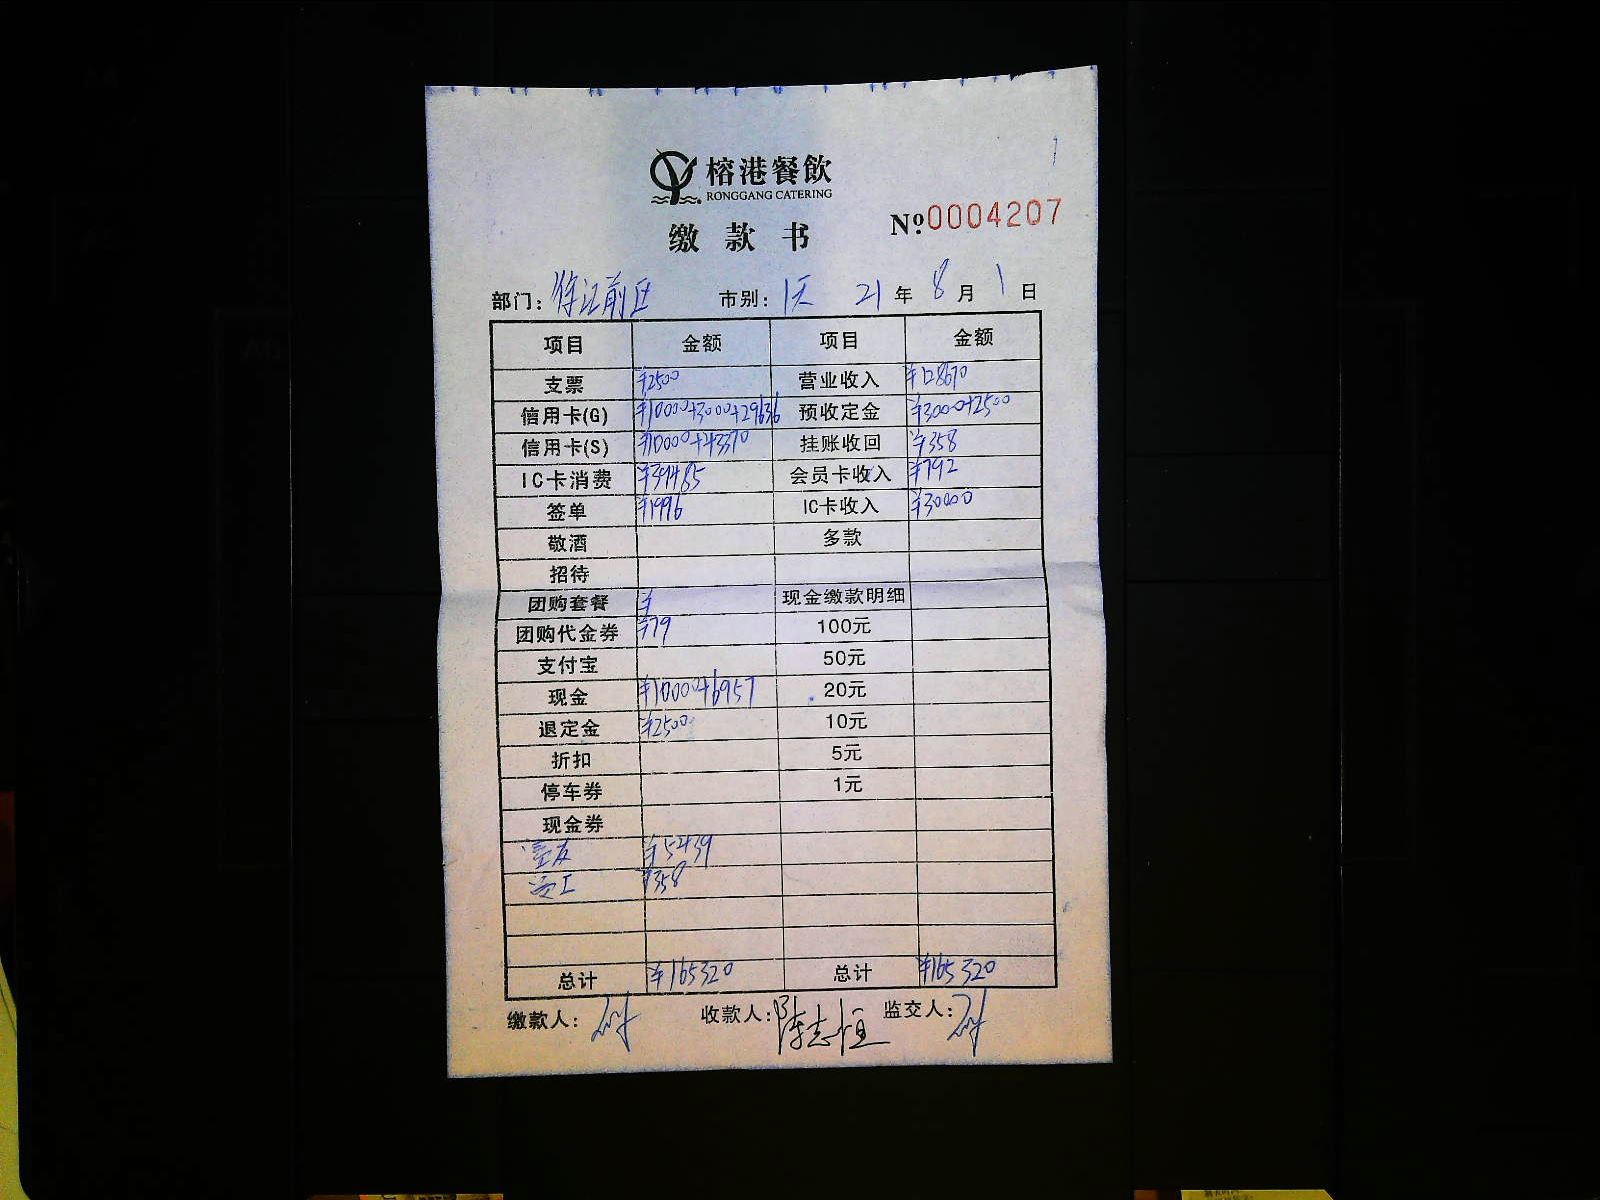 榕港餐飲
RONGGANG CATERING
缴款书
№0004207
部门: 徐汇前区 市别: 1天 21年8月1日
项目 金额 项目 金额
支票 ¥2500 营业收入 8670
信用卡(G) ¥10000+3000+29636 预收定金 ¥3000+2500
信用卡(S) ¥10000+43370 挂账收回 ¥358
IC卡消费 ¥39485 会员卡收入 ¥792
签单 ¥1996 IC卡收入 ¥30000
敬酒 多款
招待
团购套餐 ¥ 现金缴款明细
团购代金券 ¥79 100元
支付宝 50元
现金 ¥10000+6957 20元
退定金 ¥2500 10元
折扣 5元
停车券 1元
现金券
¥5439
¥358
总计 ¥165320 总计 ¥165320
缴款人: 收款人: 陈志恒 监交人: